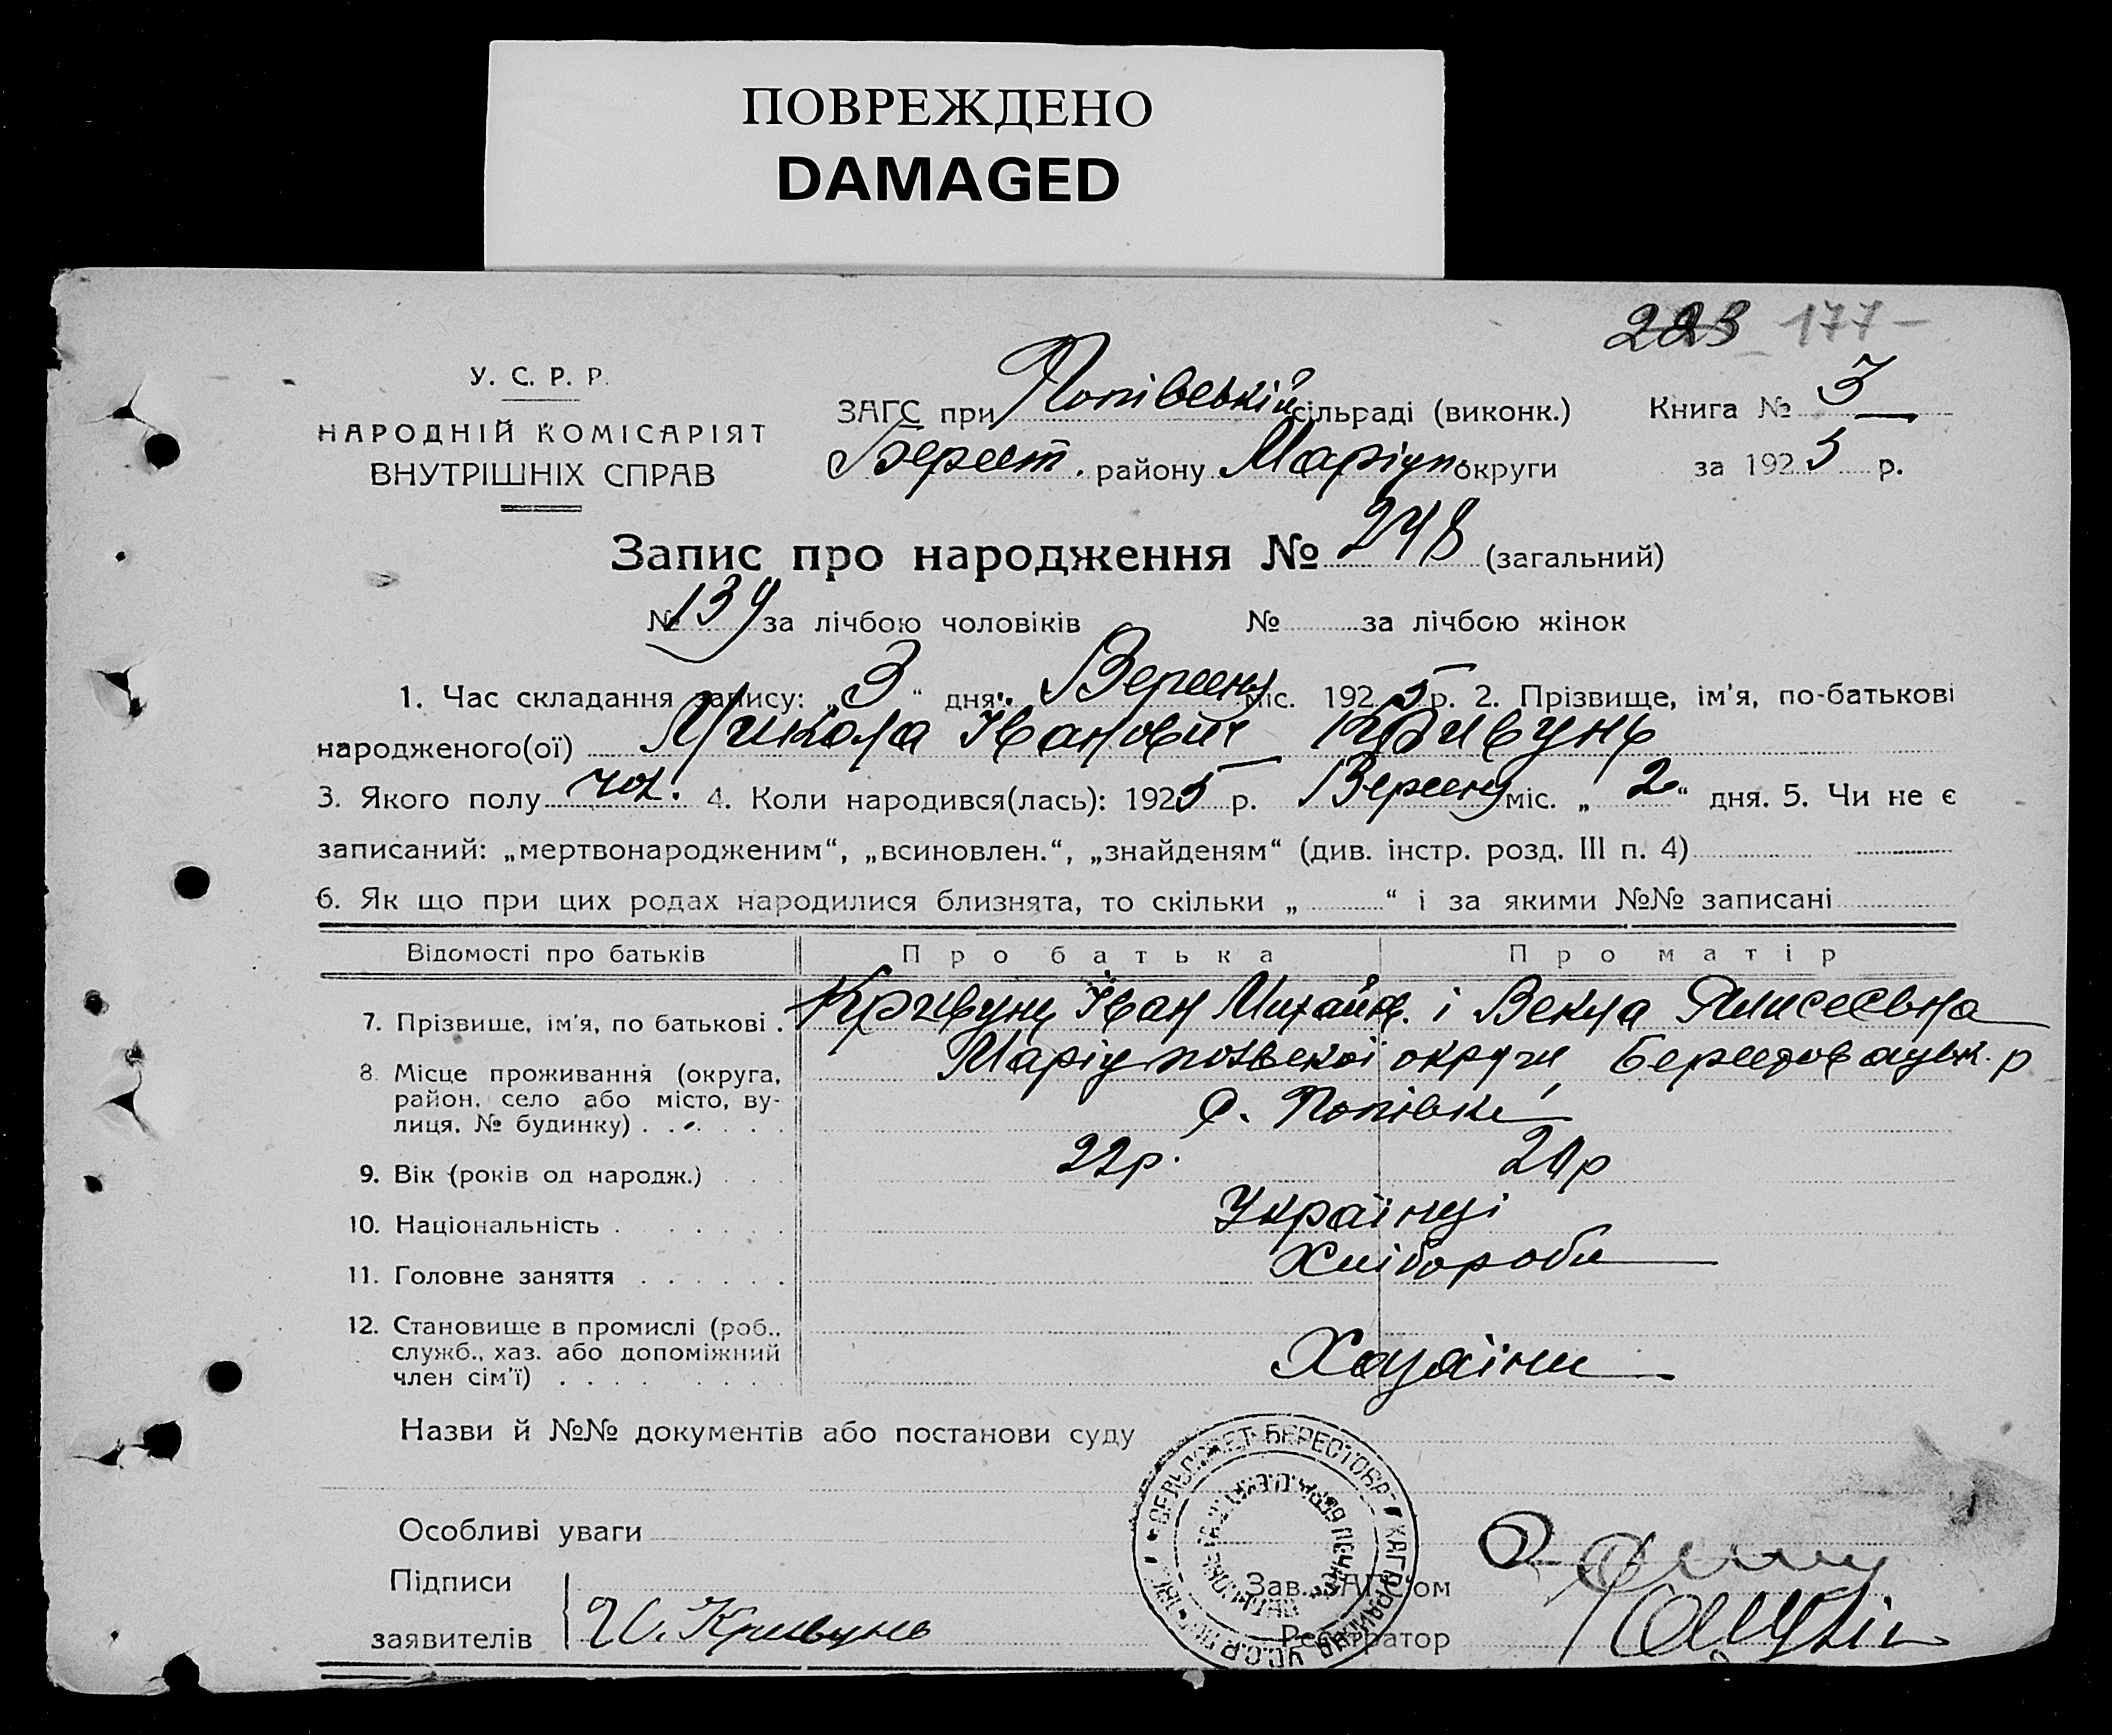 ПОВРЕЖДЕНО
DAMAGED
223 177
У. С. Р. Р.
НАРОДНІЙ КОМІСАРІЯТ
ВНУТРІШНІХ СПРАВ
ЗАГС при Попівській сільраді (виконк.) Книга № 3
Берест. району Маріуп. округи за 1925 р.
Запис про народження № 248 (загальний)
№ 139 за лічбою чоловіків № за лічбою жінок
1. Час складання запису: „3“ дня Вересня міс. 1925 р. 2. Прізвище, ім'я, по-батькові
народженого(ої) Микола Іванович Кривунь
3. Якого полу чол. 4. Коли народився(лась): 1925 р. Вересня міс. „2“ дня. 5. Чи не є
записаний: „мертвонародженим“, „всиновлен.“, „знайденям“ (див. інстр. розд. III п. 4)
6. Як що при цих родах народилися близнята, то скільки „ “ і за якими №№ записані
Відомості про батьків Про батька Про матір
7. Прізвище, ім'я, по батькові . Кривунь Іван Михайл. і Векла
8. Місце проживання (округа, Маріупольської округи, Берестовацьк. р
район, село або місто, ву-
лиця, № будинку) . . . . . . с. Попівки
9. Вік (років од народж.) . . . 22р. 21р
10. Національність . . . . . . Українці
11. Головне заняття . . . . . . Хлібороби
12. Становище в промислі (роб.,
служб., хаз. або допоміжний
член сім'ї) . . . . . . . . Хазяіни
Назви й №№ документів або постанови суду
Особливі уваги
Підписи
заявителів И. Кривунь
Зав. ЗАГС'ом
Реєстратор